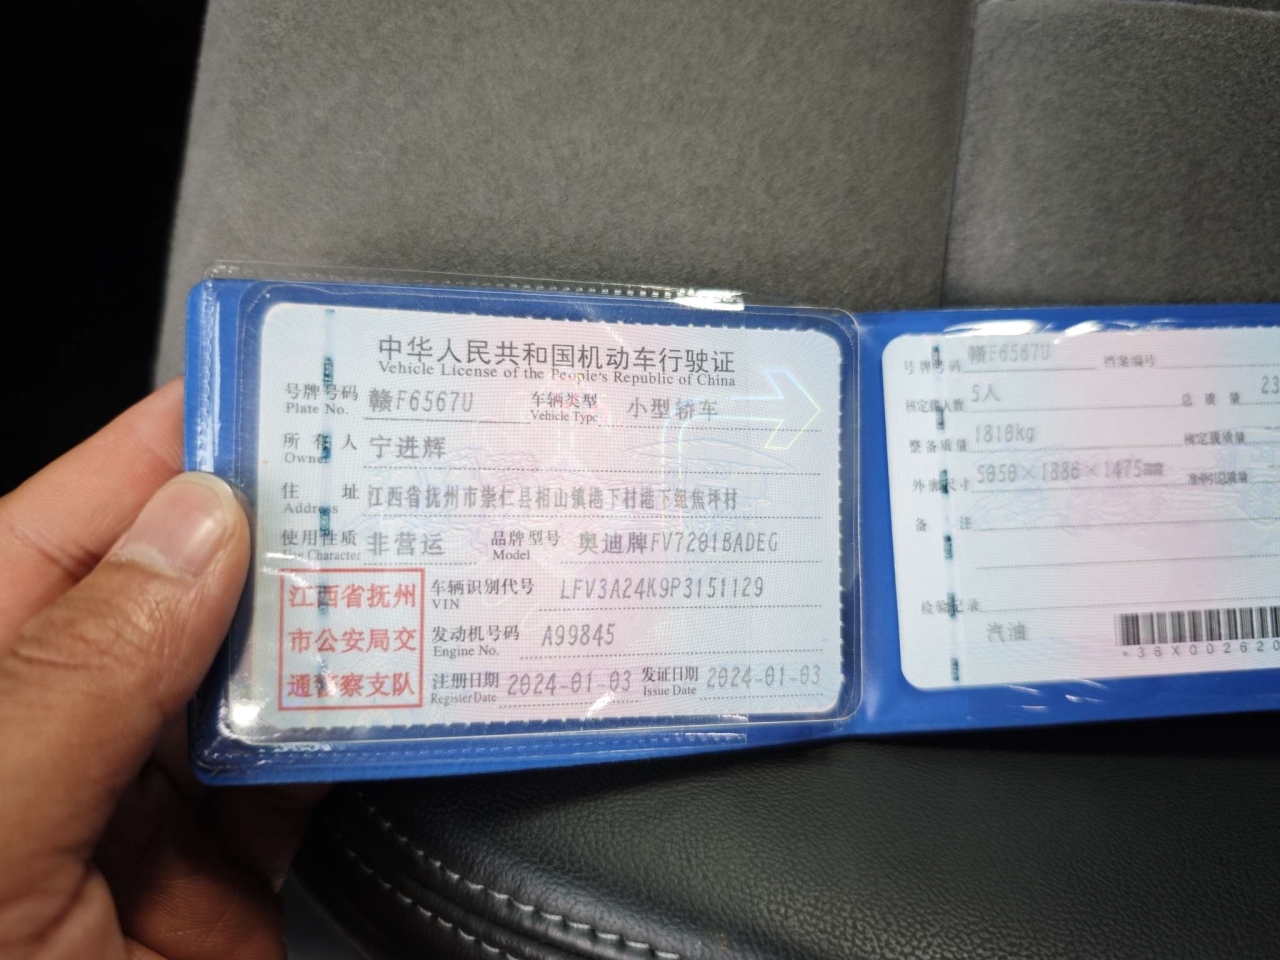 中华人民共和国机动车行驶证
Vehicle License of the People's Republic of China
号牌号码 赣F6567U 车辆类型 小型轿车
Plate No. Vehicle Type
所有人 宁进辉
Owner
住址 江西省抚州市崇仁县相山镇港下村港下组焦坪村
Address
使用性质 非营运 品牌型号 奥迪牌FV7201BADEG
Use Character Model
江西省抚州
市公安局交
通警察支队
车辆识别代号 LFV3A24K9P3151129
VIN
发动机号码 A99845
Engine No.
注册日期 2024-01-03 发证日期 2024-01-03
Register Date Issue Date
号牌号码 赣F6567U 档案编号
核定载人数 5人 总质量 23
整备质量 1810kg 核定载质量
外廓尺寸 5050×1886×1475mm 准牵引总质量
备注
检验记录
汽油
*36X002620